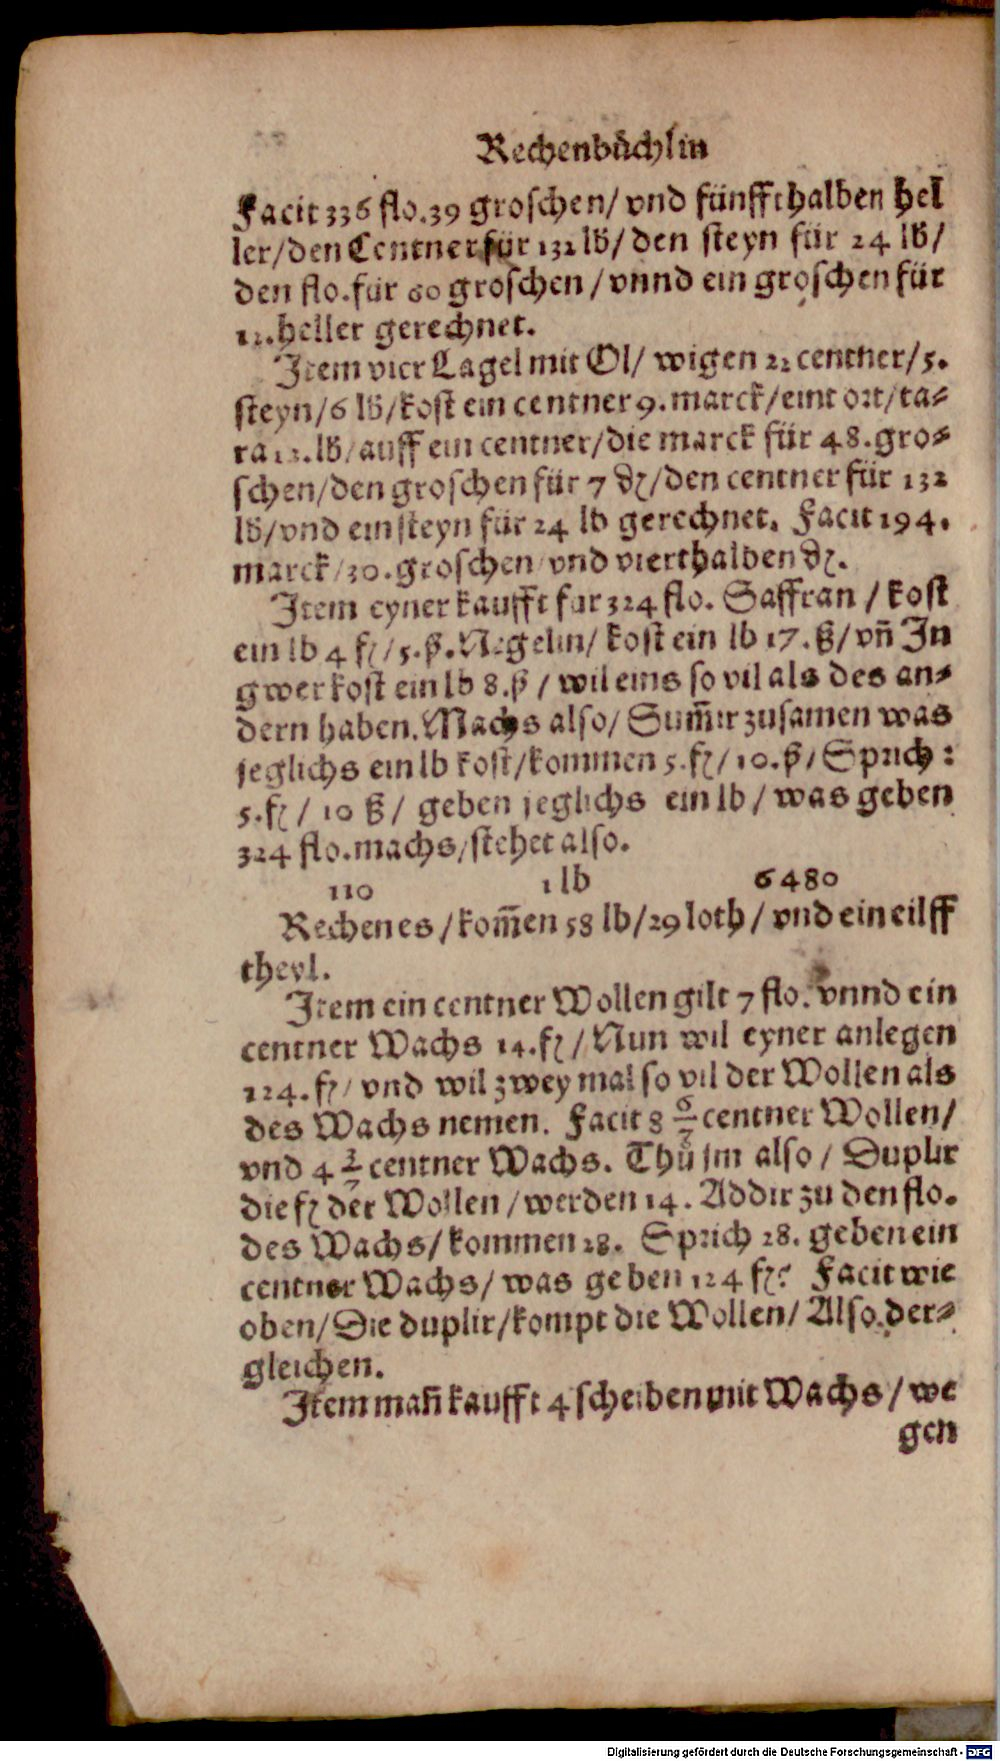 Rechenbuͤchlin
Facit 336 flo. 39 groschen/ vnd fünffthalben hel
ler/ den Centner für 132 lb/ den steyn für 24 lb/
den flo. für 60 groschen / vnnd ein groschen für
12. heller gerechnet.
Item vier Lagel mit Ol/ wigen 22 centner/ 5.
steyn/ 6 lb/ kost ein centner 9. marck/ eint ort/ ta⸗
ra 13. lb/ auff ein centner/ die marck für 48. gro⸗
schen/ den groschen für 7 ₰/ den centner für 132
lb/ vnd ein steyn für 24 lb gerechnet. Facit 194.
marck/ 30. groschen vnd vierthalben ₰.
Item eyner kaufft für 324 flo. Saffran / kost
ein lb 4 fl/ 5. ß. Negelin/ kost ein lb 17. ß/ vñ In
gwer kost ein lb 8. ß / wil eins so vil als des an⸗
dern haben. Machs also/ Sum̃ir zusamen was
jeglichs ein lb kost/ kommen 5. fl/ 10. ß/ Sprich:
5. fl / 10 ß/ geben jeglichs ein lb / was geben
324 flo. machs/ stehet also.
110 1 lb 6480
Rechen es / kom̃en 58 lb/ 29 loth / vnd ein eilff
theyl.
Item ein centner Wollen gilt 7 flo. vnnd ein
centner Wachs 14. fl / Nun wil eyner anlegen
124. fl/ vnd wil zwey mal so vil der Wollen als
des Wachs nemen. Facit 8 6/7 centner Wollen/
vnd 4 3/7 centner Wachs. Thů jm also / Duplir
die fl der Wollen / werden 14. Addir zu den flo.
des Wachs/ kommen 28. Sprich 28. geben ein
centner Wachs/ was geben 124 fl? Facit wie
oben/ Die duplir/ kompt die Wollen/ Also der⸗
gleichen.
Item man kaufft 4 scheiben mit Wachs / we
gen
Digitalisierung gefördert durch die Deutsche Forschungsgemeinschaft - DFG